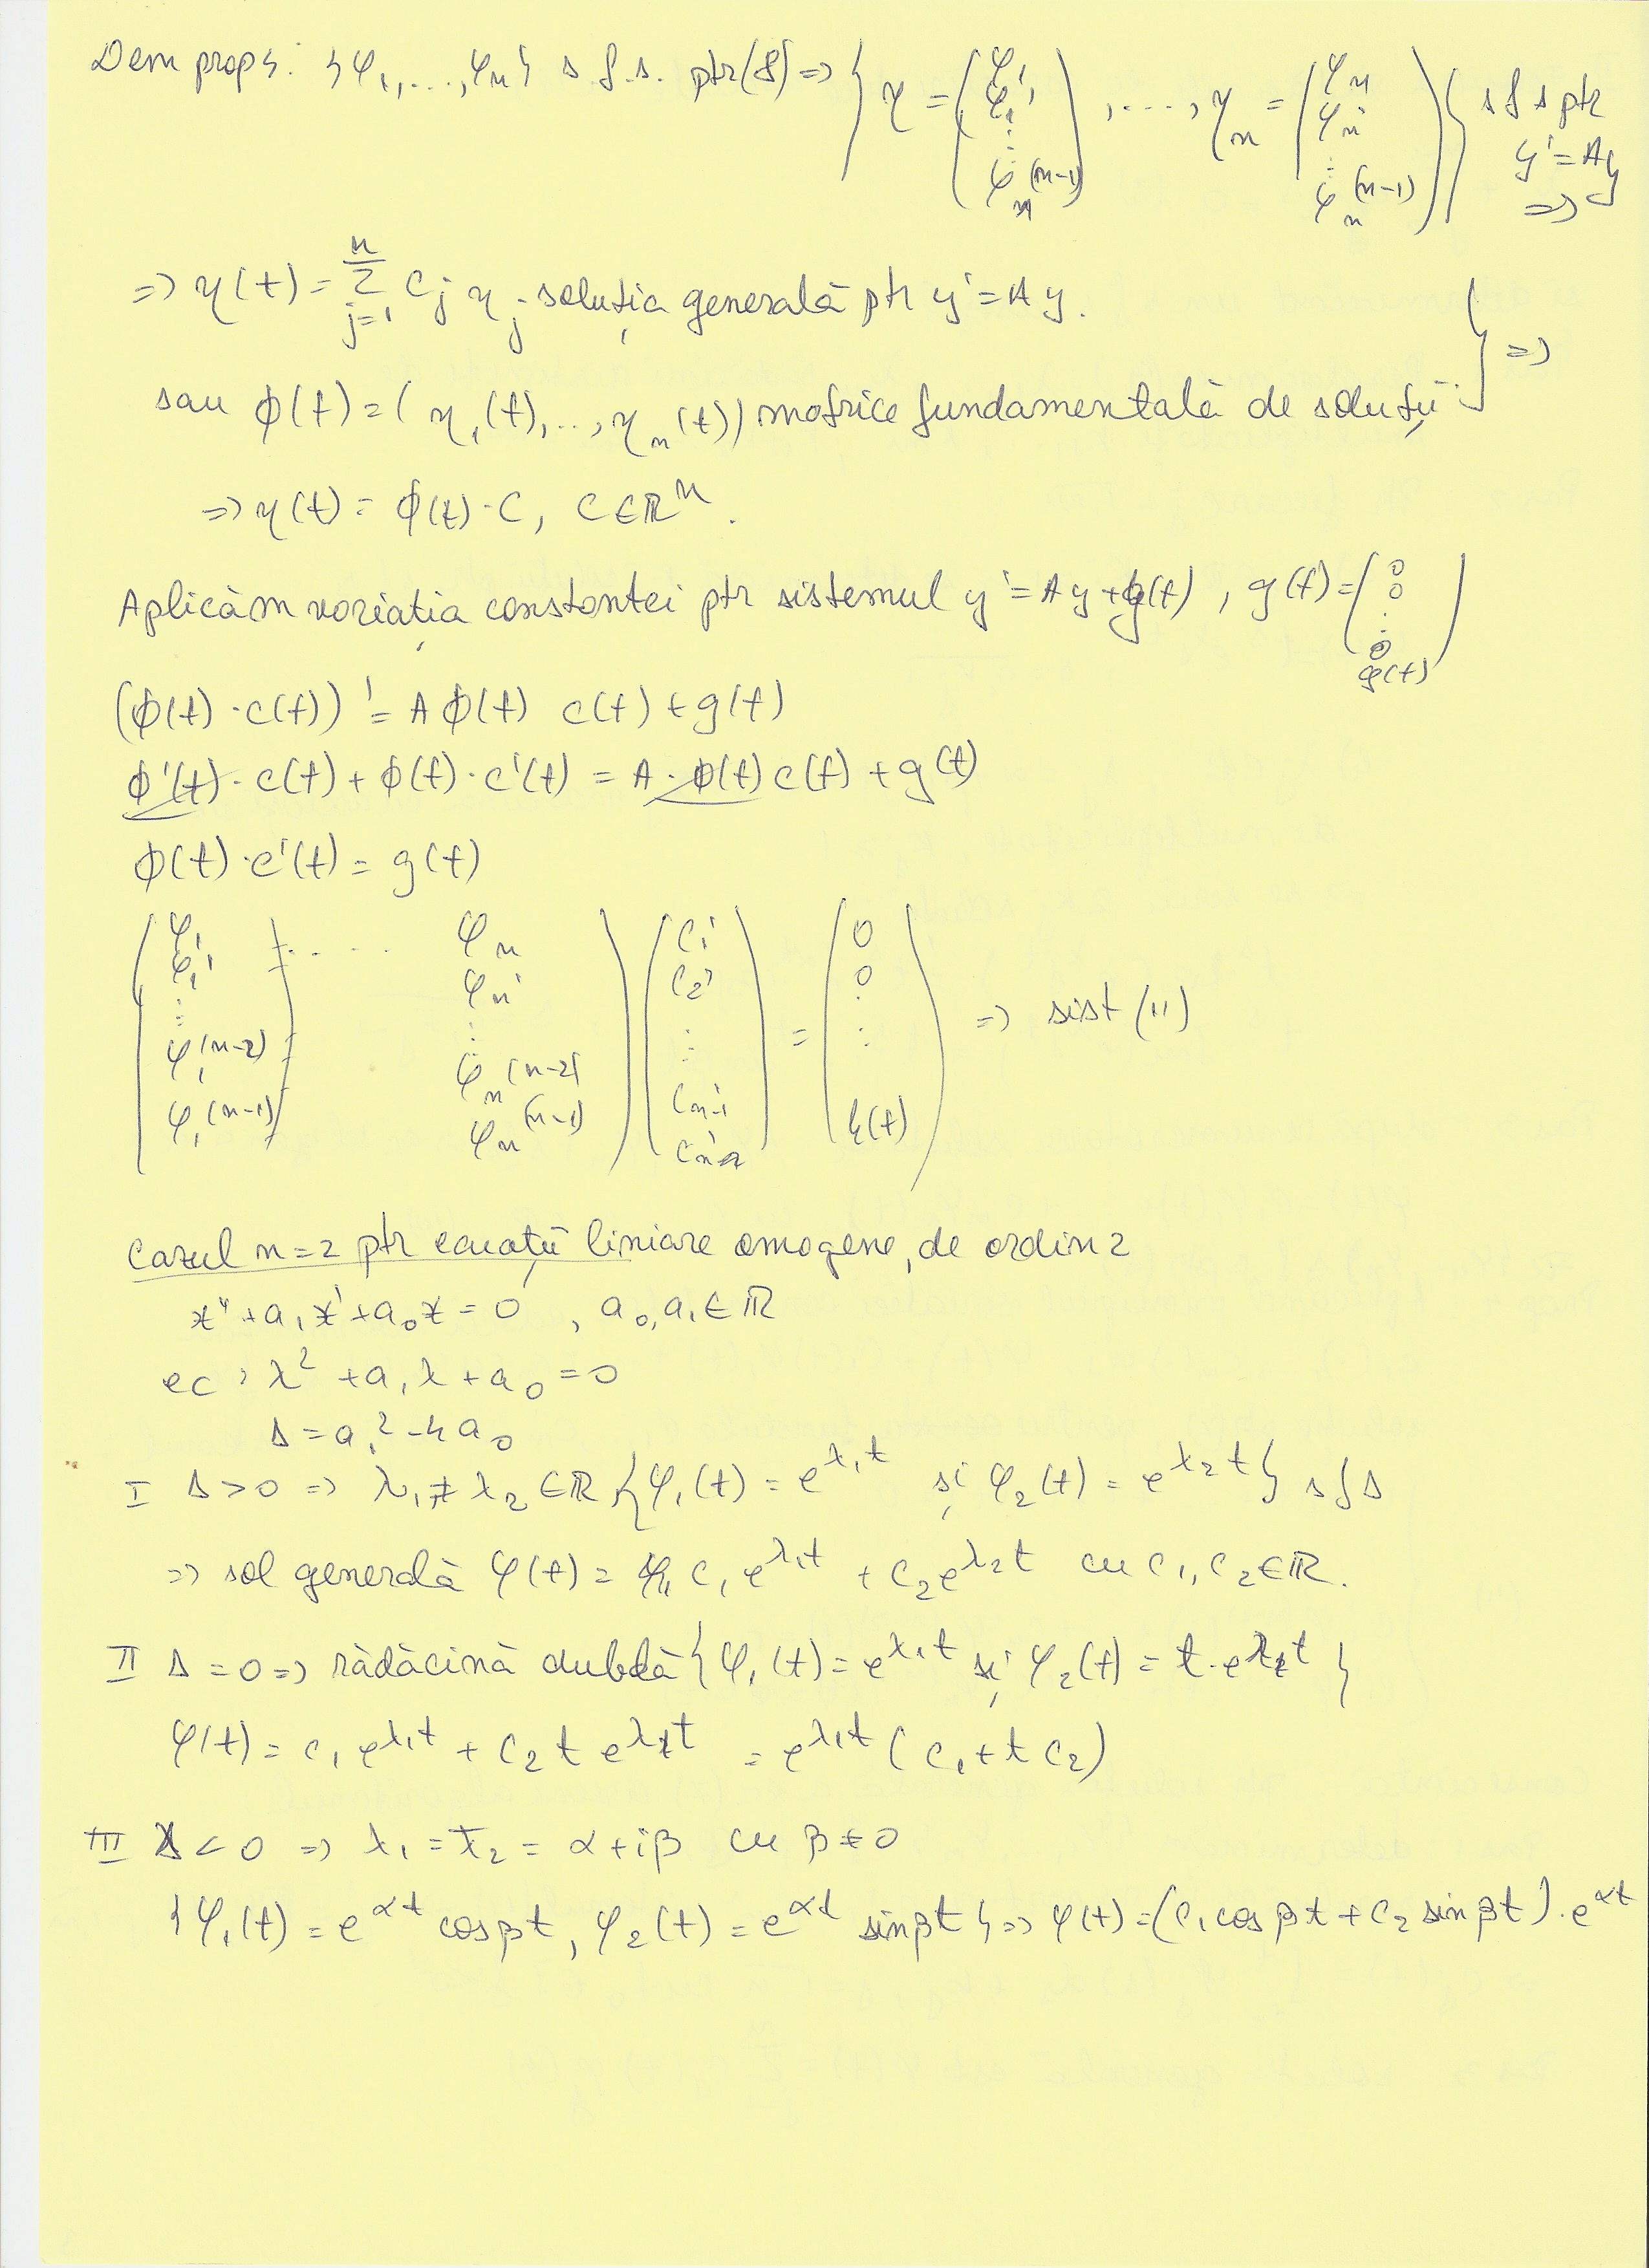 Dem prop 4. {φ₁,...,φₙ} s.f.s. ptr (8) => { η = (φ₁ φ₁' ⋮ φₙ⁽ⁿ⁻¹⁾) , ...., ηₙ = (φₙ φₙ' ⋮ φₙ⁽ⁿ⁻¹⁾) } s f s ptr y' = Ay =>
=> η(t) = Σⁿⱼ₌₁ cⱼ ηⱼ soluția generală ptr y' = A y. } =>
sau ϕ(t) = (η₁(t),...,ηₙ(t)) matrice fundamentală de soluții
=> η(t) = ϕ(t)·C, C ∈ ℝⁿ.
Aplicăm variația constantei ptr sistemul y' = A y + g(t) , g(t) = (0 0 ⋮ 0 g(t))
(ϕ(t)·c(t))' = A ϕ(t) c(t) + g(t)
ϕ'(t)·c(t) + ϕ(t)·c'(t) = A·ϕ(t) c(t) + g(t)
ϕ(t)·c'(t) = g(t)
(φ₁ φ₁' ⋮ φ₁⁽ⁿ⁻²⁾ φ₁⁽ⁿ⁻¹⁾ .... φₙ φₙ' ⋮ φₙ⁽ⁿ⁻²⁾ φₙ⁽ⁿ⁻¹⁾) (c₁' c₂' ⋮ cₙ₋₁' cₙ') = (0 0 ⋮ h(t)) => sist (11)
Cazul n=2 ptr ecuații liniare omogene, de ordin 2
x'' + a₁x' + a₀x = 0 , a₀, a₁ ∈ ℝ
ec : λ² + a₁λ + a₀ = 0
Δ = a₁² - 4a₀
I Δ > 0 => λ₁ ≠ λ₂ ∈ ℝ {φ₁(t) = e^{λ₁t} și φ₂(t) = e^{λ₂t}} s f s
=> sol generală φ(t) = c₁ e^{λ₁t} + c₂ e^{λ₂t} cu c₁, c₂ ∈ ℝ.
II Δ = 0 => rădăcină dublă {φ₁(t) = e^{λ₁t} și φ₂(t) = t·e^{λ₁t}}
φ(t) = c₁ e^{λ₁t} + c₂ t e^{λ₁t} = e^{λ₁t} (c₁ + t c₂)
III Δ < 0 => λ₁ = λ̄₂ = α + iβ cu β ≠ 0
{φ₁(t) = e^{αt} cos βt, φ₂(t) = e^{αt} sin βt} => φ(t) = (c₁ cos βt + c₂ sin βt)·e^{αt}